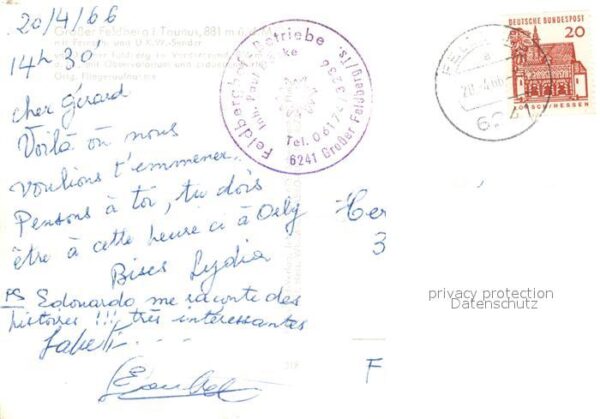 20/4/66
Großer Feldberg i Taunus, 881 m ü. d. M.
mit Fernseh- und U.K.W.-Sender
14h 30'
Orig. Fliegeraufnahme
cher Gérard
Voilà où nous
voulions t'emmener.
Pensons à toi, tu dois
être à cette heure ci à Orly
Bises Lydia
PS Edouardo me raconte des
histoires !!! très intéressantes
Feldberghof-Betriebe
Inh. Paul
Tel. 06174
6241 Großer Feldberg/Ts.
DEUTSCHE BUNDESPOST
20
LORSCH/HESSEN
Her
3
F
privacy protection
Datenschutz